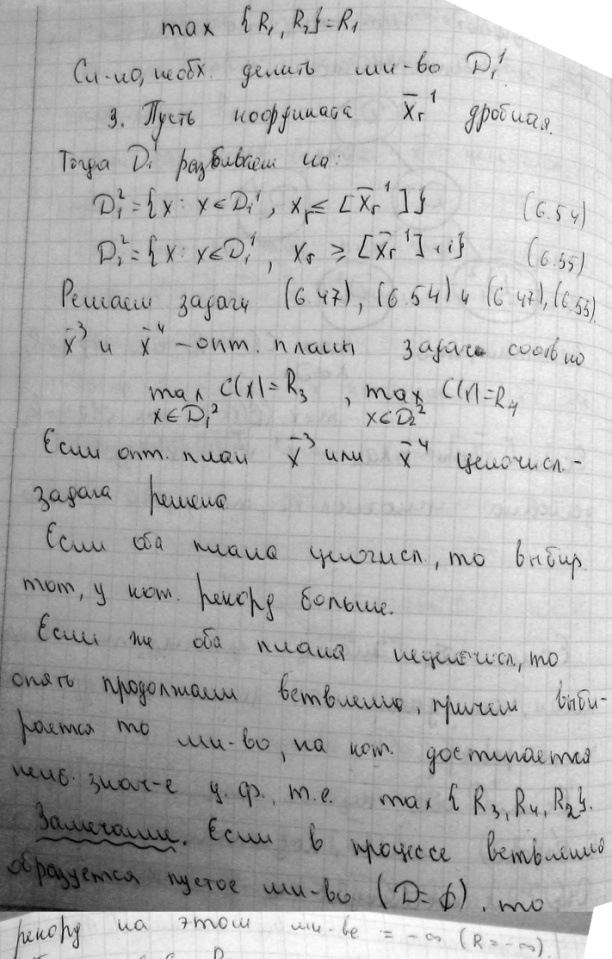 max {R₁, R₂}=R₁
Сл-но, необх. делить мн-во D₁¹
3. Пусть координата x̄ᵣ¹ дробная.
Тогда D₁¹ разбиваем на:
D₁²={x: x∈D₁¹, xᵣ≤[x̄ᵣ¹]} (6.54)
D₂²={x: x∈D₁¹, xᵣ ≥ [x̄ᵣ¹]+1} (6.55)
Решаем задачи (6.47), (6.54) и (6.47), (6.55).
x̄³ и x̄⁴ – опт. планы задач соотвно
max C(x)=R₃, max C(x)=R₄
x∈D₁² x∈D₂²
Если опт. план x̄³ или x̄⁴ целочисл. -
задача решена
Если оба плана целочисл, то выбир.
тот, у кот. рекорд больше.
Если же оба плана нецелочисл, то
опять продолжаем ветвление, причем выби-
рается то мн-во, на кот. достигается
наиб. знач-е ц.ф., т.е. max{R₃, R₄, R₂}.
Замечание. Если в процессе ветвления
образуется пустое мн-во (D=ϕ), то
рекорд на этом мн-ве = -∞ (R=-∞)